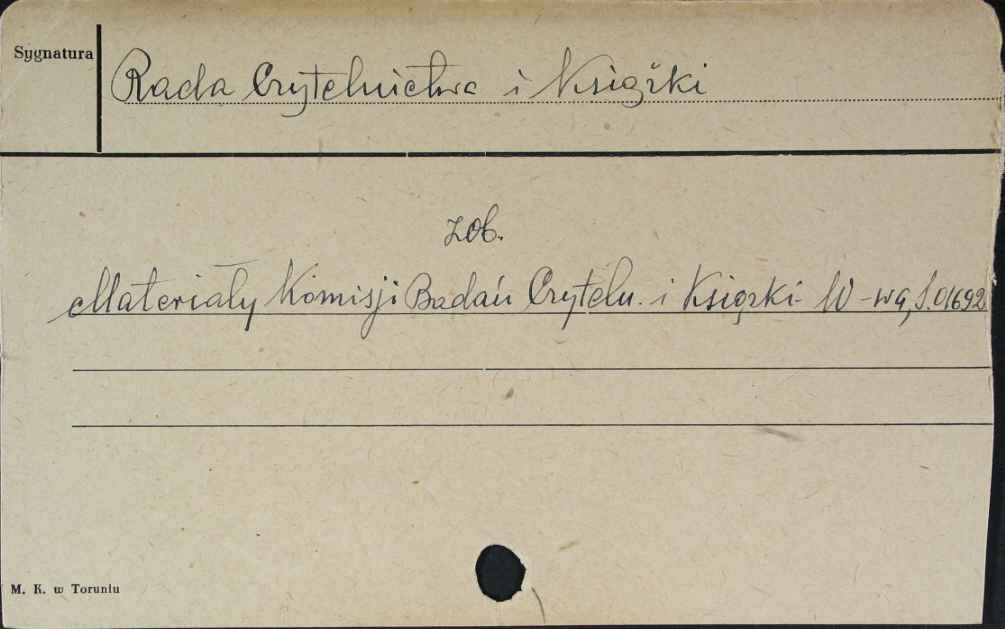 Sygnatura
Rada Czytelnictwa i Książki
zob.
Materiały Komisji Badań Czyteln. i Książki W-wa, S.01692
M. K. w Toruniu